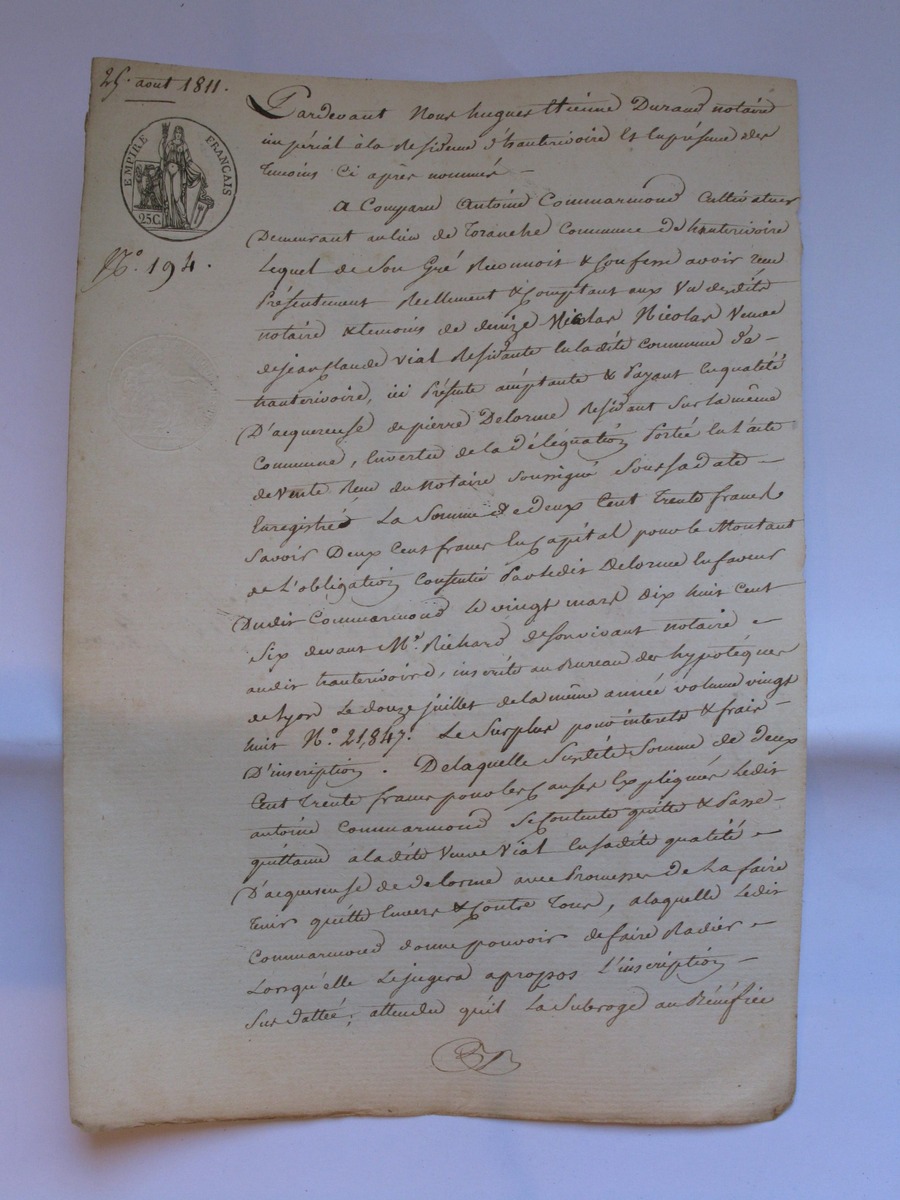 25. aout 1811.
EMPIRE FRANÇAIS
25C
N.° 194.
Pardevant Nous hugues Etienne Durand notaire
impérial à la Residence d'hauterivoire Et En présence des
Temoins Ci après nommés —
A Comparu Antoine Commarmond Cultivateur
Demeurant au lieu de Toranche Commune de hauterivoire
Lequel de Son Gré Reconnoit & Confesse avoir reçu
Présentement Réellement & Comptant aux Vu desdits
notaire & temoins de denize Nicolas Nicolas Veuve
de jean Claude Vial Residante En ladite Commune d'a-
hauterivoire, ici Présente acceptante & Payant En qualité
D'acquereuse de pierre Delorme Residant Sur la même
Commune, En vertu de la déléguation Portée En l'acte
de Vente Reçu du Notaire Soussigné Sous Sa date —
Enregistré La Somme de deux Cent Trente francs
Savoir Deux Cent francs En Capital pour le Montant
de L'obligation Consentie Par ledit Delorme En faveur
Dudit Commarmond Le vingt mars dix huit Cent
Six devant M.e Richard de Son vivant notaire —
audit hauterivoire, inscrite au Bureau des hypotéques
de Lyon Le douze juillet de la même année volume vingt
huit N.° 21,847. Le Surplus pour interets & frais —
D'inscription. De laquelle Susdite Somme de deux
Cent Trente francs pour les Causes Expliquées Ledit
antoine Commarmond Se Contente quitte & Passe
quittance a ladite Veuve Vial En Sadite qualité —
D'acquereuse de delorme avec Promesses de La faire
Tenir quitte Envers & Contre Tous, a laquelle Ledit
Commarmond donne pouvoir de faire Radier —
Lorsqu'elle Le jugera a propos L'inscription —
Sus dattée; attendu qu'il La Subroge au Bénéfice